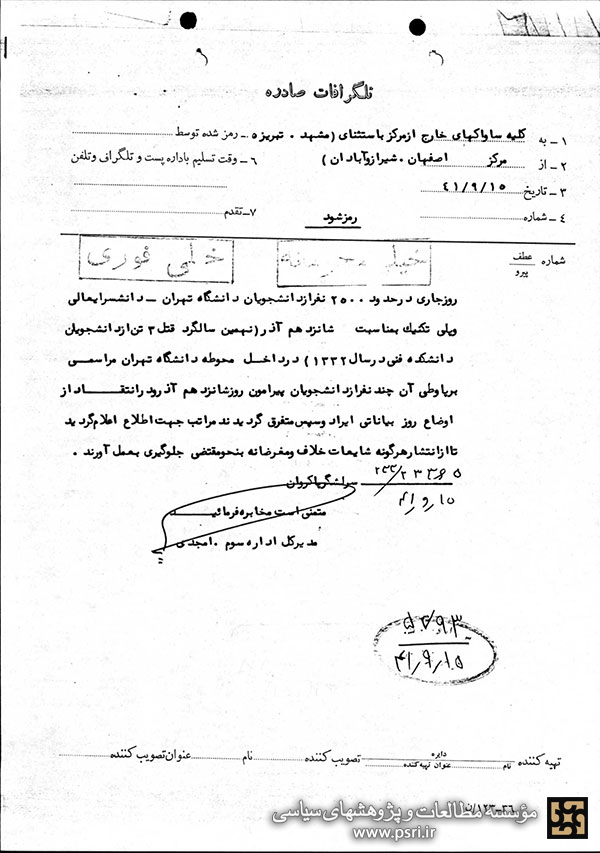 تلگرافات صادره
۱ــ به کلیه ساواکهای خارج ازمرکز باستثنای (مشهد . تبریز ۵ــ رمز شده توسط
۲ــ از مرکز اصفهان . شیراز وآبادان ) ۶ــ وقت تسلیم باداره پست و تلگرافی وتلفن
۳ــ تاریخ ۴۱/۹/۱۵
۴ــ شماره رمزشود ۷ــ تقدم
شماره عطف پیرو
خیلی محرمانه خیلی فوری
روزجاری درحدود ۲۵۰۰ نفرازدانشجویان دانشگاه تهران ــ دانشسرایعالی
وپلی تکنیک بمناسبت شانزدهم آذر (نهمین سالگرد قتل ۳ تن ازدانشجویان
دانشکده فنی درسال ۱۳۳۲) درداخل محوطه دانشگاه تهران مراسمی
برپاوطی آن چند نفرازدانشجویان پیرامون روزشانزدهم آذرودرانتقاد از
اوضاع روز بیاناتی ایراد وسپس متفرق گردیدند مراتب جهت اطلاع اعلام گردید
تاازانتشارهرگونه شایعات خلاف ومغرضانه بنحومقتضی جلوگیری بعمل آورند .
سرلشگرپاکروان
متمنی است مخابره فرمائید
مدیرکل اداره سوم . امجدی
۴۱/۹/۱۵
تهیه کننده دایره نام عنوان تهیه کننده تصویب کننده نام عنوان تصویب کننده
مؤسسه مطالعات و پژوهشهای سیاسی
www.psri.ir